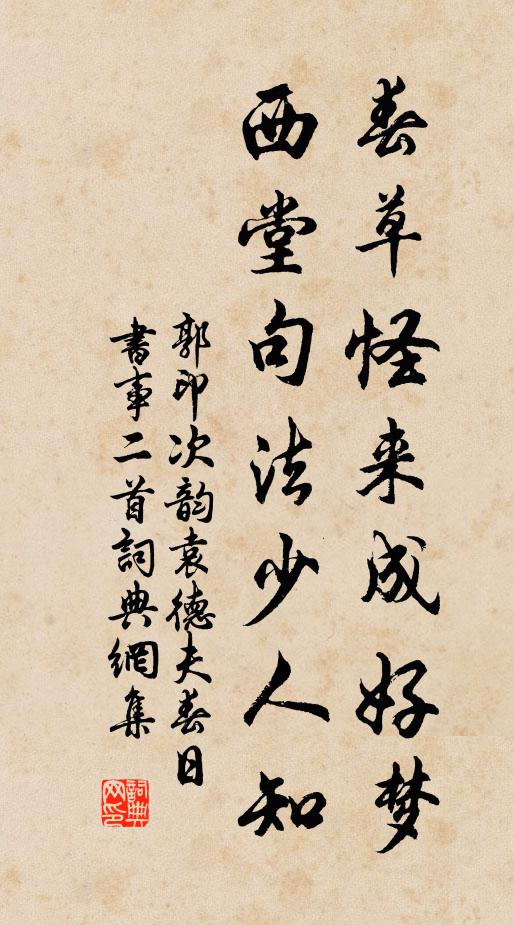 春草怪来成好梦
西堂句法少人知
郭印次韵袁德夫春日
書事二首詞典網集
詞典
网印